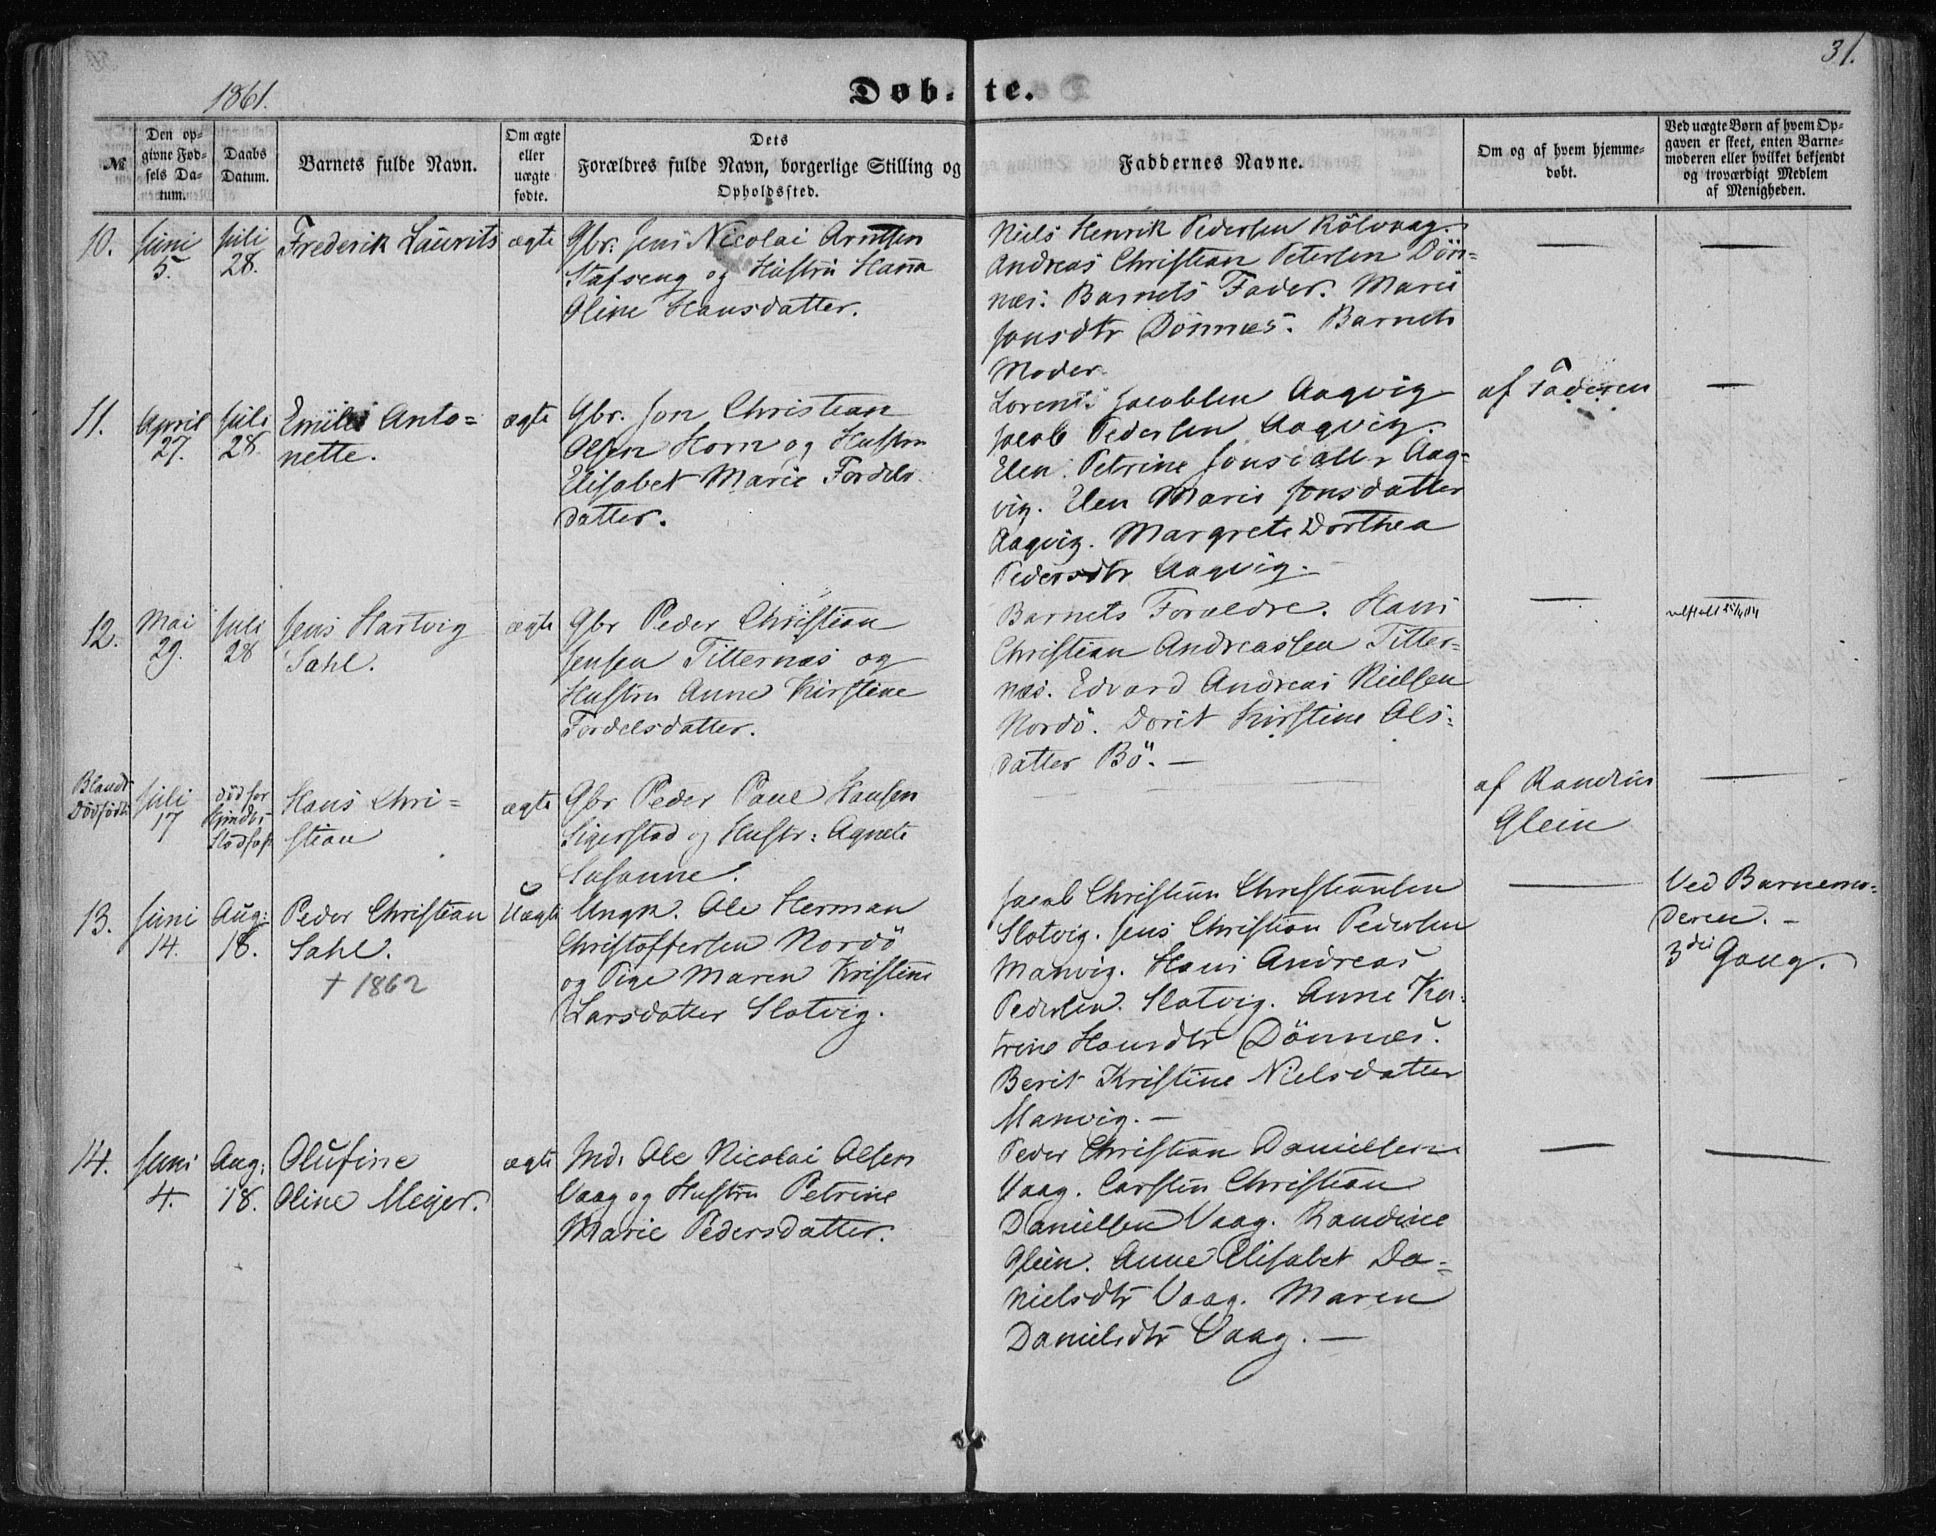 31.
1861.
Døbte.
№
Den op-
givne Fød-
sels Da-
tum.
Daabs
Datum.
Barnets fulde Navn.
Om ægte
eller
uægte
fødte.
Dets
Forældres fulde Navn, borgerlige Stilling og
Opholdssted.
Faddernes Navne.
Om og af hvem hjemme-
døbt.
Ved uægte Børn af hvem Op-
gaven er skeet, enten Barne-
moderen eller hvilket bekjendt
og troværdigt Medlem
af Menigheden.
10.
Juni
5.
Juli
28.
Frederik Laurits
ægte
Gbr. Jens Nicolai Arntsen
Stafseng og Hustru Hanna
Oline Hansdatter.
Niels Henrik Pedersen Rölvaag.
Andreas Christian Petersen Dön-
næs. Barnets Fader. Marie
Jonsdtr Dönnæs. Barnets
Moder.
—
—
11.
April
27.
Juli
28
Emilie Anto=
nette.
ægte
Gbr. Jon Christian
Olsen Horn og Hustru
Elisabet Marie Fordels-
datter.
Lorents Jacobsen Aagvig
Jacob Pedersen Aagvig.
Elen Petrine Jonsdatter Aag-
vig. Elen Marie Jonsdatter
Aagvig. Margrete Dorthea
Pedersdtr Aagvig.
af Faderen
—
12.
Mai
29.
Juli
28
Jens Hartvig
Sahl.
ægte
Gbr Peder Christian
Jensen Titternæs og
Hustru Anne Kirstine
Fordelsdatter.
Barnets Forældre. Hans
Christian Andreassen Titter=
næs. Edvard Andreas Nielsen
Nordö. Dorit Kirstine Ols-
datter Bö. —
—
Blandt
Dödfödte
Juli
17
död för
Hans Chri=
stian
ægte
Gbr Peder Paul Hansen
Sigerstad og Hustr: Agnete
Susanne.
af Randine
Glein
—
13.
Juni
14.
Aug:
18.
Peder Christian
Sahl.
† 1862
Uægte
Ungk. Ole Herman
Christoffersen Nordö
og Pige Maren Kristine
Larsdatter Slotvig.
Jacob Christian Christiansen
Slotvig. Jens Christian Pedersen
Manvig. Hans Andreas
Pedersen Slotvig. Anne Ka-
trine Hansdtr Dönnæs.
Berit Kristine Nielsdatter
Manvig. —
—
Ved Barnemo-
deren. —
3die Gang.
14.
Juni
4.
Aug:
18.
Olufine
Oline Meyer.
ægte
Ind. Ole Nicolai Olsen
Vaag og Hustru Petrine
Marie Pedersdatter.
Peder Christian Danielsen
Vaag. Carsten Christian
Danielsen Vaag. Randine
Glein. Anne Elisabet Da-
nielsdtr Vaag. Maren
Danielsdtr Vaag. —
—
—